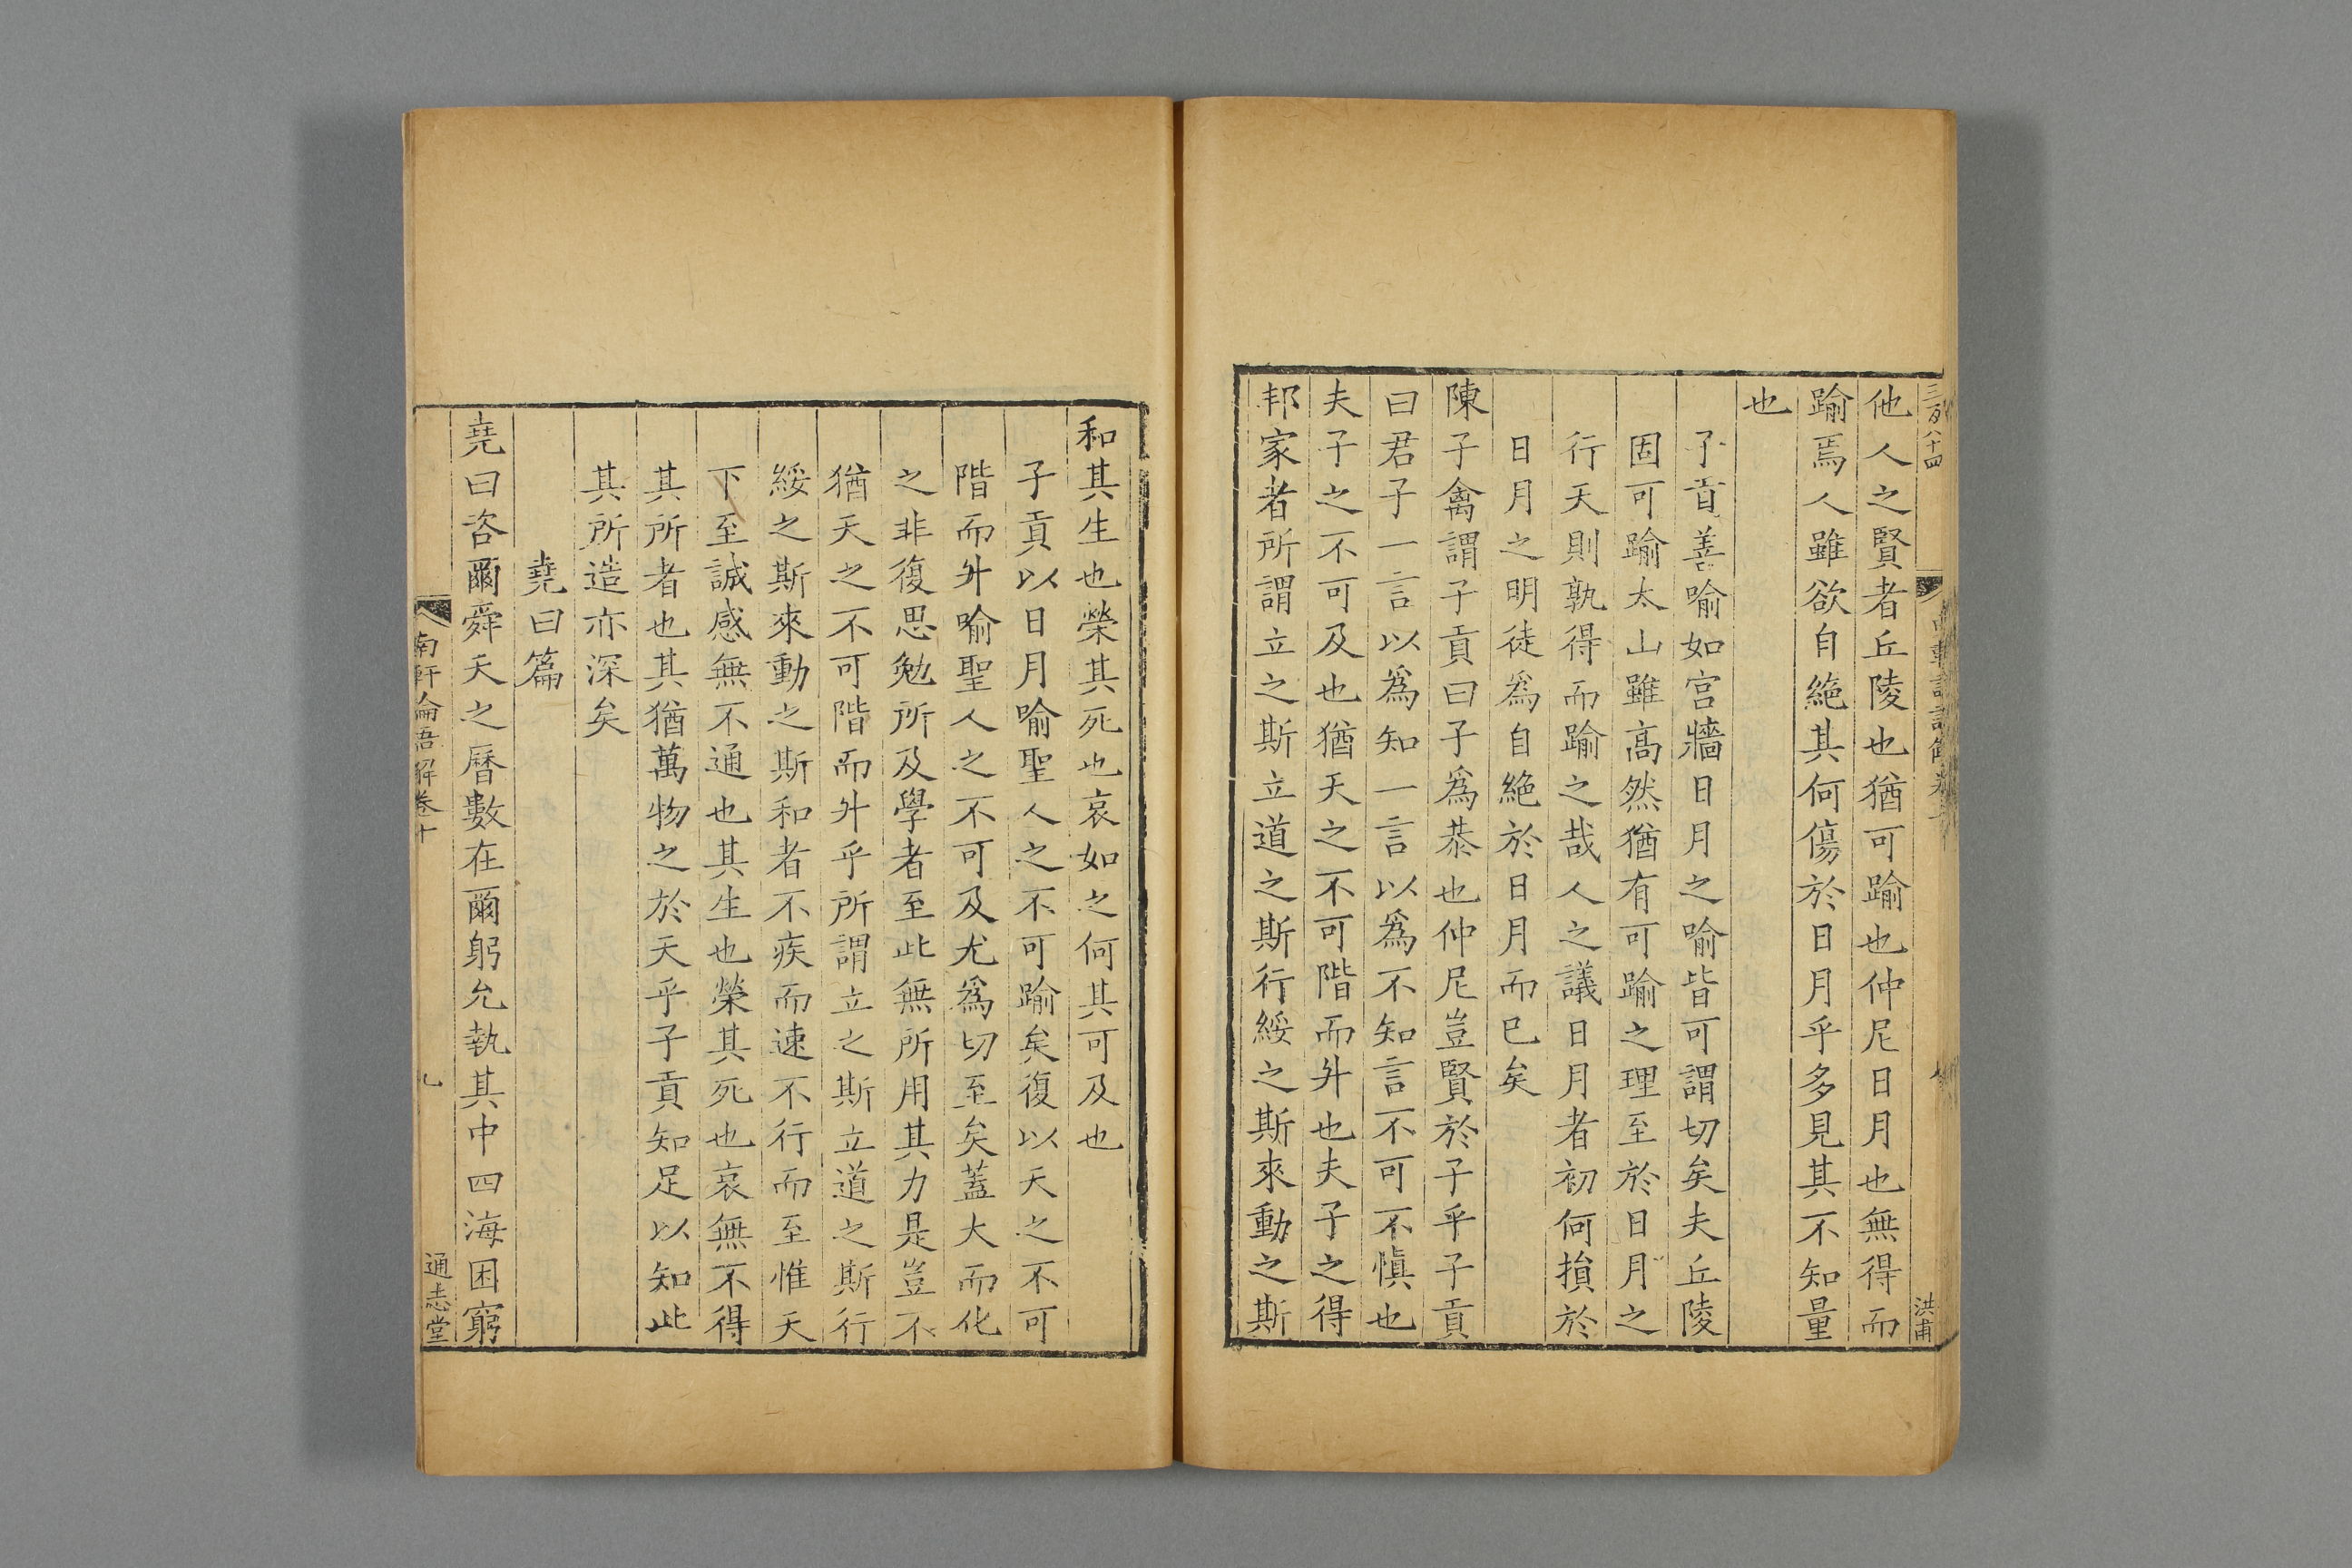 三百八十四
洪甫
他人之賢者丘陵也猶可踰也仲尼日月也無得而
踰焉人雖欲自絶其何傷於日月乎多見其不知量
也
子貢善喻如宫牆日月之喻皆可謂切矣夫丘陵
固可踰太山雖高然猶有可踰之理至於日月之
行天則孰得而踰之哉人之議日月者初何損於
日月之明徒爲自絶於日月而已矣
陳子禽謂子貢曰子爲恭也仲尼豈賢於子乎子貢
曰君子一言以爲知一言以爲不知言不可不愼也
夫子之不可及也猶天之不可階而升也夫子之得
邦家者所謂立之斯立道之斯行綏之斯來動之斯
和其生也榮其死也哀如之何其可及也
子貢以日月喻聖人之不可踰矣復以天之不可
階而升喻聖人之不可及尤爲切至矣蓋大而化
之非復思勉所及學者至此無所用其力是豈不
猶天之不可階而升乎所謂立之斯立道之斯行
綏之斯來動之斯和者不疾而速不行而至惟天
下至誠感無不通也其生也榮其死也哀無不得
其所者也其猶萬物之於天乎子貢知足以知此
其所造亦深矣
堯曰篇
堯曰咨爾舜天之曆數在爾躬允執其中四海困窮
南軒論語解卷十
通志堂